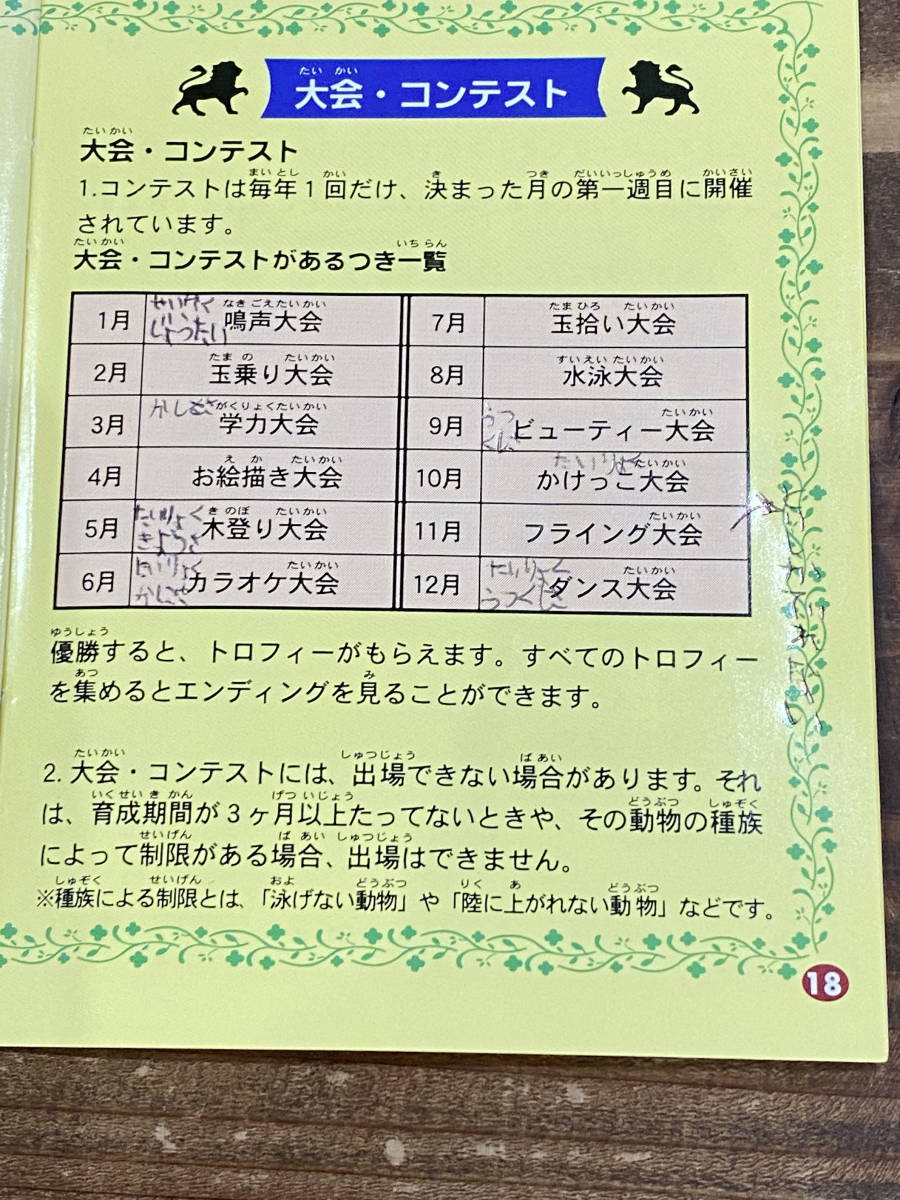 大会・コンテスト
大会・コンテスト
1.コンテストは毎年１回だけ、決まった月の第一週目に開催
されています。
大会・コンテストがあるつき一覧
1月 せいかく じょうたい 鳴声大会 7月 玉拾い大会
2月 玉乗り大会 8月 水泳大会
3月 かしこさ 学力大会 9月 うつくしさ ビューティー大会
4月 お絵描き大会 10月 たいりょく かけっこ大会
5月 たいりょく きようさ 木登り大会 11月 フライング大会
6月 たいりょく カラオケ大会 12月 たいりょく うつくしさ ダンス大会
優勝すると、トロフィーがもらえます。すべてのトロフィー
を集めるとエンディングを見ることができます。
2. 大会・コンテストには、出場できない場合があります。それ
は、育成期間が３ヶ月以上たってないときや、その動物の種族
によって制限がある場合、出場はできません。
※種族による制限とは、「泳げない動物」や「陸に上がれない動物」などです。
18